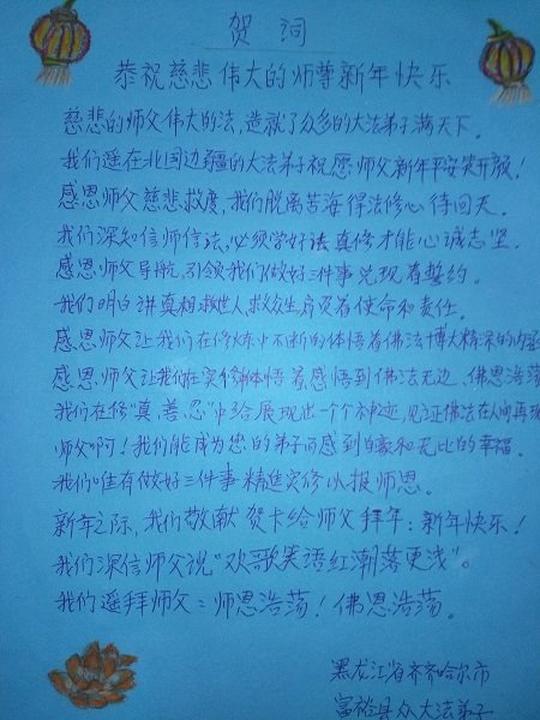 贺词
恭祝慈悲伟大的师尊新年快乐
慈悲的师父伟大的法,造就了众多的大法弟子满天下。
我们遥在北国边疆的大法弟子祝愿师父新年平安笑开颜!
感恩师父慈悲救度,我们脱离苦海得法修心待回天。
我们深知信师信法,必须学好法真修才能心诚志坚。
感恩师父导航,引领我们做好三件事兑现着誓约。
我们明白讲真相救世人,救众生肩负着使命和责任。
感恩师父让我们在修炼中不断的体悟着佛法博大精深的内涵
感恩师父让我们在实修中体悟着感悟到佛法无边、佛恩浩荡
我们在修“真、善、忍”中给展现出一个个神迹,见证佛法在人间再现
师父啊!我们能成为您的弟子而感到自豪和无比的幸福。
我们唯有做好三件事精進实修以报师恩。
新年之际,我们敬献贺卡给师父拜年:新年快乐!
我们深信师父说“欢歌笑语红潮落更浅”。
我们遥拜师父:师恩浩荡!佛恩浩荡。
黑龙江省齐齐哈尔市
富裕县众大法弟子